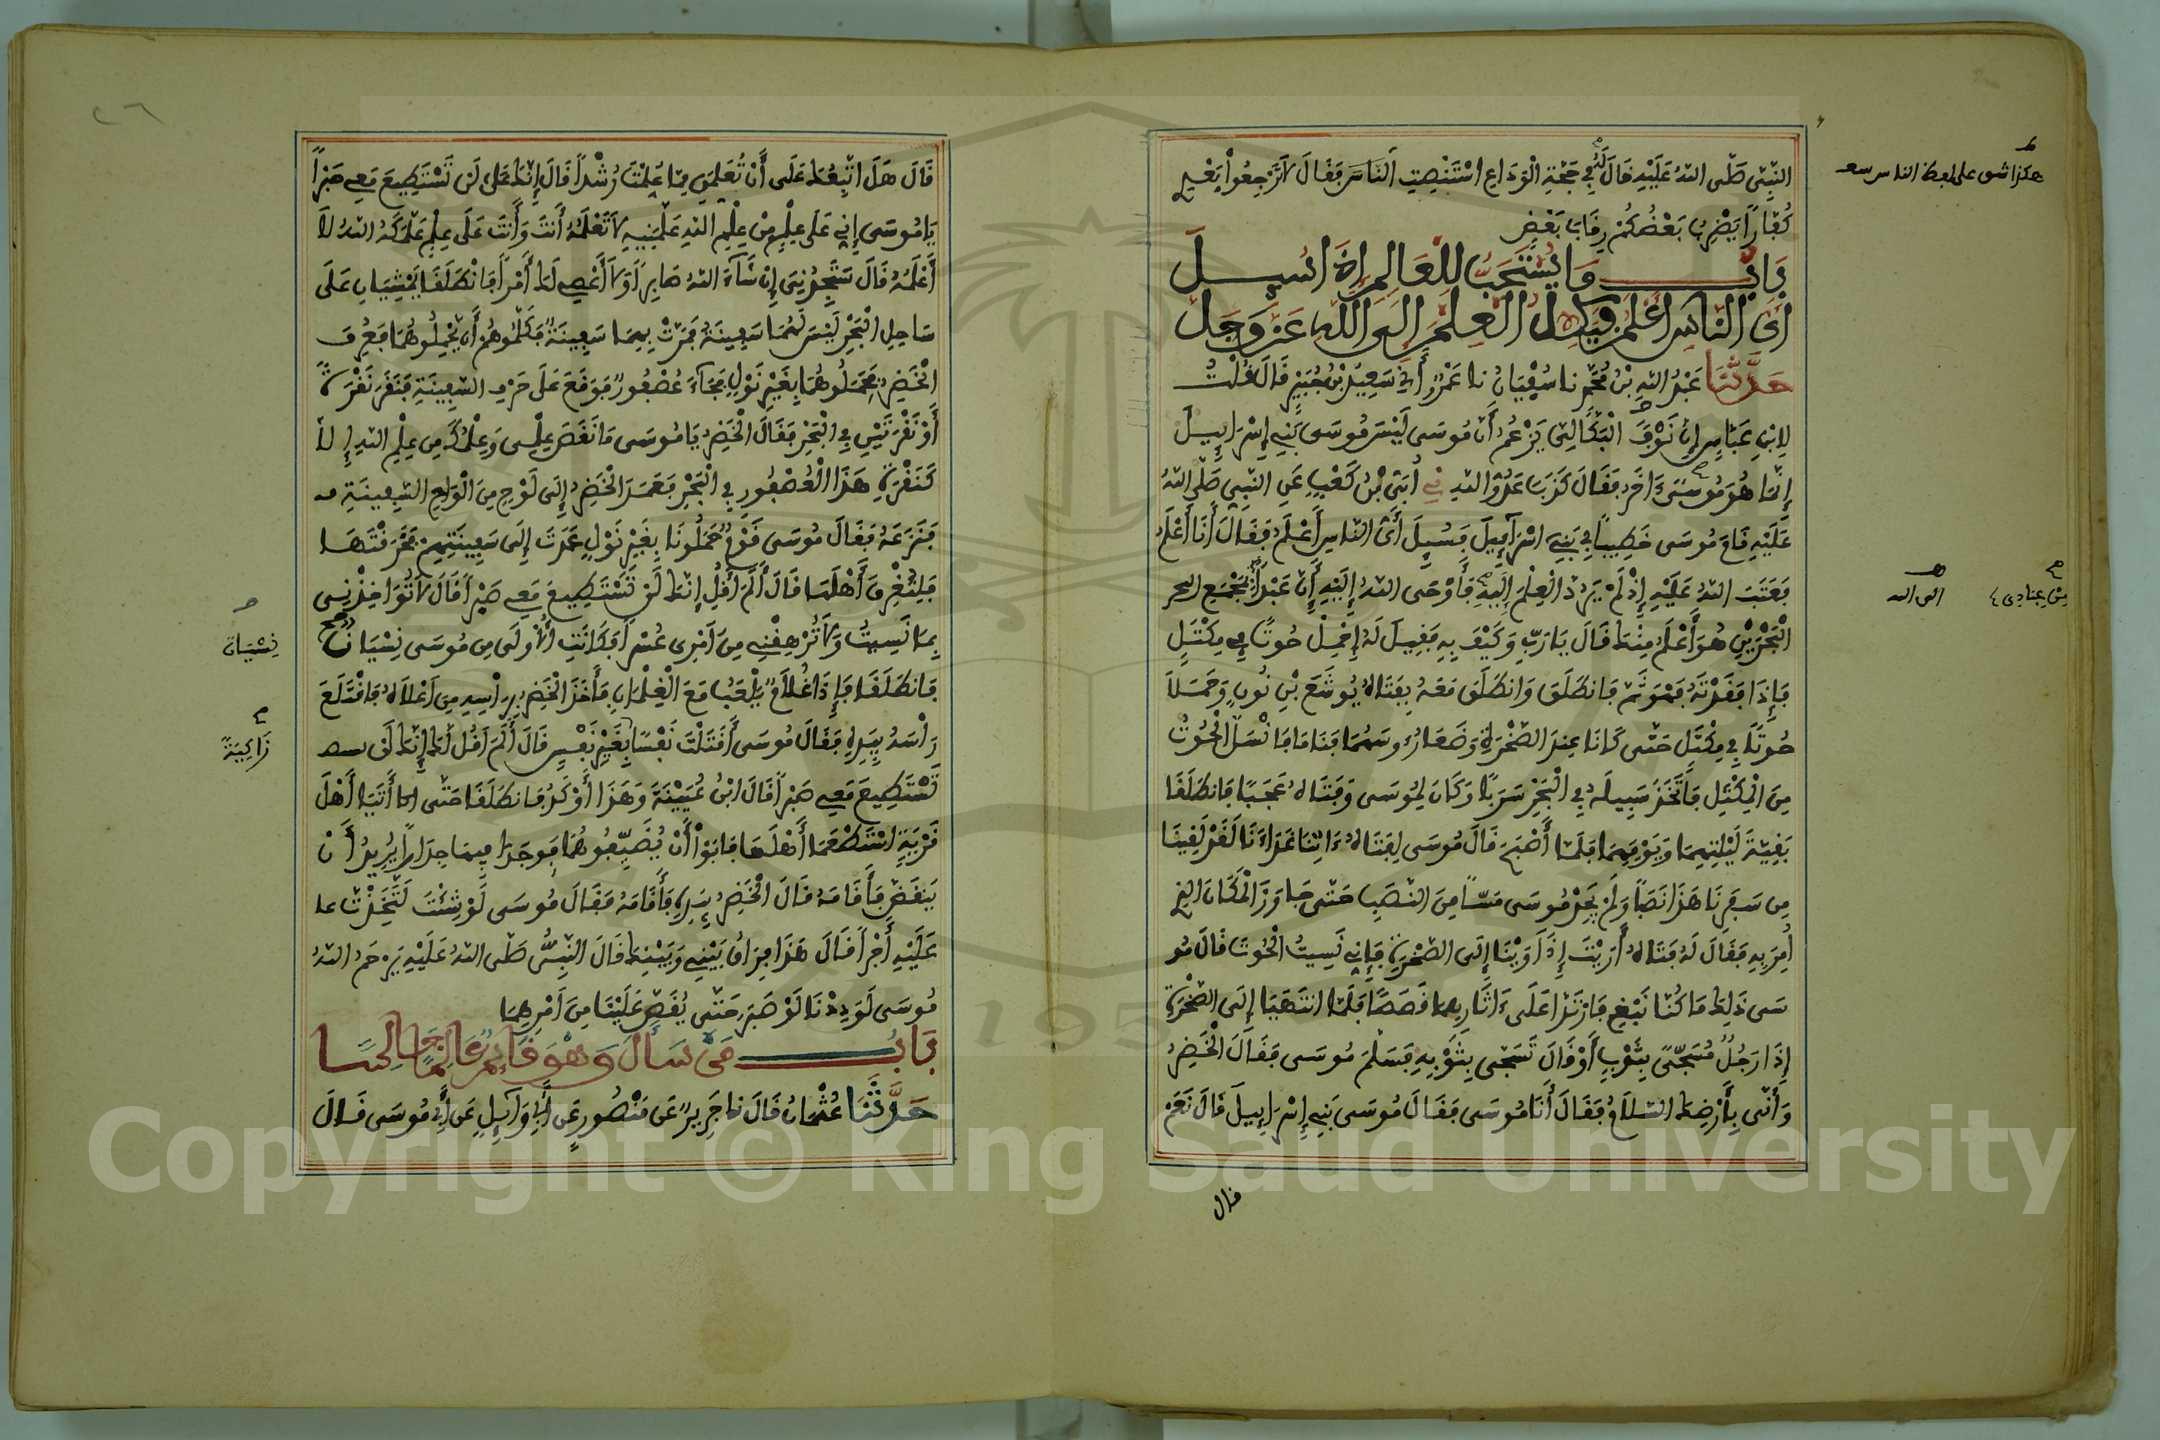 النَّبِيِّ صَلَّى اللهُ عَلَيْهِ قَالَ لَهُ فِي حَجَّةِ الْوَدَاعِ اسْتَنْصِتِ النَّاسَ فَقَالَ لَا تَرْجِعُوا بَعْدِي
كُفَّارًا يَضْرِبُ بَعْضُكُمْ رِقَابَ بَعْضٍ
بَابُ مَا يُسْتَحَبُّ لِلْعَالِمِ إِذَا سُيِلَ
أَيُّ النَّاسِ أَعْلَمُ فَيَكِلُ الْعِلْمَ إِلَى اللهِ عَزَّ وَجَلَّ
حَدَّثَنَا عَبْدُ اللهِ بْنُ مُحَمَّدٍ نا سُفْيَانُ نا عَمْرٌو أَخْبَرَنِي سَعِيدُ بْنُ جُبَيْرٍ قَالَ قُلْتُ
لِابْنِ عَبَّاسٍ إِنَّ نَوْفَ الْبَكَالِيَّ يَزْعُمُ أَنَّ مُوسَى لَيْسَ مُوسَى بَنِي إِسْرَايِيلَ
إِنَّمَا هُوَ مُوسًى ءَاخَرُ فَقَالَ كَذَبَ عَدُوُّ اللهِ أُبَيُّ بْنُ كَعْبٍ عَنِ النَّبِيِّ صَلَّى اللهُ
عَلَيْهِ قَامَ مُوسَى خَطِيبًا فِي بَنِي اسْرَايِيلَ فَسُيِلَ أَيُّ النَّاسِ أَعْلَمُ فَقَالَ أَنَا أَعْلَمُ
فَعَتَبَ اللهُ عَلَيْهِ إِذْ لَمْ يَرُدَّ الْعِلْمَ إِلَيْهِ فَأَوْحَى اللهُ إِلَيْهِ أَنَّ عَبْدًا بِمَجْمَعِ البحر
الْبَحْرَيْنِ هُوَ أَعْلَمُ مِنْكَ قَالَ يَا رَبِّ وَكَيْفَ بِهِ فَقِيلَ لَهُ إِحْمِلْ حُوتًا فِي مِكْتَلٍ
فَإِذَا فَقَدْتَهُ فَهُوَ ثَمَّ فَانْطَلَقَ وَانْطَلَقَ مَعَهُ بِفَتَاهُ يُوشَعَ بْنِ نُونٍ وَحَمَلَا
حُوتًا فِي مِكْتَلٍ حَتَّى كَانَا عِنْدَ الصَّخْرَةِ وَضَعَا رُءُوسَهُمَا فَنَامَا فَانْسَلَّ الْحُوتُ
مِنَ الْمِكْتَلِ فَاتَّخَذَ سَبِيلَهُ فِي الْبَحْرِ سَرَبًا وَكَانَ لِمُوسَى وَفَتَاهُ عَجَبًا فَانْطَلَقَا
بَقِيَّةَ لَيْلَتِهِمَا وَيَوْمِهِمَا فَلَمَّا أَصْبَحَ قَالَ مُوسَى لِفَتَاهُ ءَاتِنَا غَدَاءَنَا لَقَدْ لَقِينَا
مِن سَفَرِنَا هَذَا نَصَبًا وَلَمْ يَجِدْ مُوسَى مَسًّا مِنَ النَّصَبِ حَتَّى جَاوَزَ الْمَكَانَ الذِي
أُمِرَ بِهِ فَقَالَ لَهُ فَتَاهُ أَرَيْتَ إِذْ أَوَيْنَا إِلَى الصَّخْرَةِ فَإِنِّي نَسِيتُ الْحُوتَ قَالَ مُو
سَى ذَلِكَ مَا كُنَّا نَبْغِ فَارْتَدَّا عَلَى ءَاثَارِهِمَا قَصَصًا فَلَمَّا انتَهَيَا إِلَى الصَّخْرَةِ
إِذَا رَجُلٌ مُسَجًّى بِثَوْبٍ أَوْ قَالَ تَسَجَّى بِثَوْبِهِ فَسَلَّمَ مُوسَى فَقَالَ الْخَضِرُ
وَأَنَّى بِأَرْضِكَ السَّلَامُ فَقَالَ أَنَا مُوسَى فَقَالَ مُوسَى بَنِي إِسْرَايِيلَ قَالَ نَعَمْ
قال
إلى الله
قَالَ هَلَ اتَّبِعُكَ عَلَى أَنْ تُعَلِّمَنِ مِمَّا عُلِّمْتَ رُشْدًا قَالَ إِنَّكَ لَن تَسْتَطِيعَ مَعِي صَبْرًا
يَا مُوسَى إِنِّي عَلَى عِلْمٍ مِنْ عِلْمِ اللهِ عَلَّمَنِيهِ لَا تَعْلَمُهُ أَنتَ وَأَنتَ عَلَى عِلْمٍ عَلَّمَكَهُ اللهُ لَا
أَعْلَمُهُ قَالَ سَتَجِدُنِي إِن شَاءَ اللهُ صَابِرًا وَلَا أَعْصِي لَكَ أَمْرًا فَانْطَلَقَا يَمْشِيَانِ عَلَى
سَاحِلِ الْبَحْرِ لَيْسَ لَهُمَا سَفِينَةٌ فَمَرَّتْ بِهِمَا سَفِينَةٌ فَكَلَّمُوهُمْ أَن يَحْمِلُوهُمَا فَعُرِفَ
الْخَضِرُ فَحَمَلُوهُمَا بِغَيْرِ نَوْلٍ فَجَاءَ عُصْفُورٌ فَوَقَعَ عَلَى حَرْفِ السَّفِينَةِ فَنَقَرَ نَقْرَةً
أَوْ نَقْرَتَيْنِ فِي الْبَحْرِ فَقَالَ الْخَضِرُ يَا مُوسَى مَا نَقَصَ عِلْمِي وَعِلْمُكَ مِن عِلْمِ اللهِ إِلَّا
كَنَقْرَةِ هَذَا الْعُصْفُورِ فِي الْبَحْرِ فَعَمَدَ الْخَضِرُ إِلَى لَوْحٍ مِنَ الْوَاحِ السَّفِينَةِ
فَنَزَعَهُ فَقَالَ مُوسَى قَوْمٌ حَمَلُونَا بِغَيْرِ نَوْلٍ عَمَدتَ إِلَى سَفِينَتِهِمْ فَخَرَقْتَهَا
فَلِتُغْرِقَ أَهْلَهَا قَالَ أَلَمَ اَقُلِ إِنَّكَ لَنْ تَسْتَطِيعَ مَعِي صَبْرًا قَالَ لَا تُوَاخِذْنِي
بِمَا نَسِيتُ وَلَا تُرْهِقْنِي مِنَ اَمْرِي عُسْرًا فَكَانَتِ الْأُولَى مِن مُوسَى نِسْيَانٌ
فَانطَلَقَا فَإِذَا غُلَامٌ يَلْعَبُ مَعَ الْغِلْمَانِ فَأَخَذَ الْخَضِرُ بِرَأْسِهِ مِن اَعْلَاهُ فَاقْتَلَعَ
رَأْسَهُ بِيَدِهِ فَقَالَ مُوسَى أَقَتَلْتَ نَفْسًا بِغَيْرِ نَفْسٍ قَالَ أَلَمَ اَقُل لَكَ إِنَّكَ لَن
تَسْتَطِيعَ مَعِي صَبْرًا قَالَ ابْنُ عُيَيْنَةَ وَهَذَا أَوْكَدُ فَانطَلَقَا حَتَّى إِذَا أَتَيَا أَهْلَ
قَرْيَةٍ اسْتَطْعَمَا أَهْلَهَا فَابَوْا أَنْ يُضَيِّفُوهُمَا فَوَجَدَا فِيهَا جِدَارًا يُرِيدُ أَنْ
يَنقَضَّ فَأَقَامَهُ قَالَ الْخَضِرُ بِيَدِهِ فَأَقَامَهُ فَقَالَ مُوسَى لَوْ شِئْتَ لَتَّخَذْتَ
عَلَيْهِ أَجْرًا قَالَ هَذَا فِرَاقُ بَيْنِي وَبَيْنِكَ قَالَ النَّبِيُّ صَلَّى اللهُ عَلَيْهِ يَرْحَمُ اللهُ
مُوسَى لَوَدِدْنَا لَوْ صَبَرَ حَتَّى يُقَصَّ عَلَيْنَا مِنَ أَمْرِهِمَا
بَابُ مَن سَأَلَ وَهْوَ قَايِمٌ عَالِمًا جَالِسًا
حَدَّثَنَا عُثْمَانُ قَالَ نا جَرِيرٌ عَن مَنْصُورٍ عَن أَبِي وَايِلٍ عَن أَبِي مُوسَى قَالَ
نِسْيَانًا
زَاكِيَةً
٢٦
Copyright © King Saud University